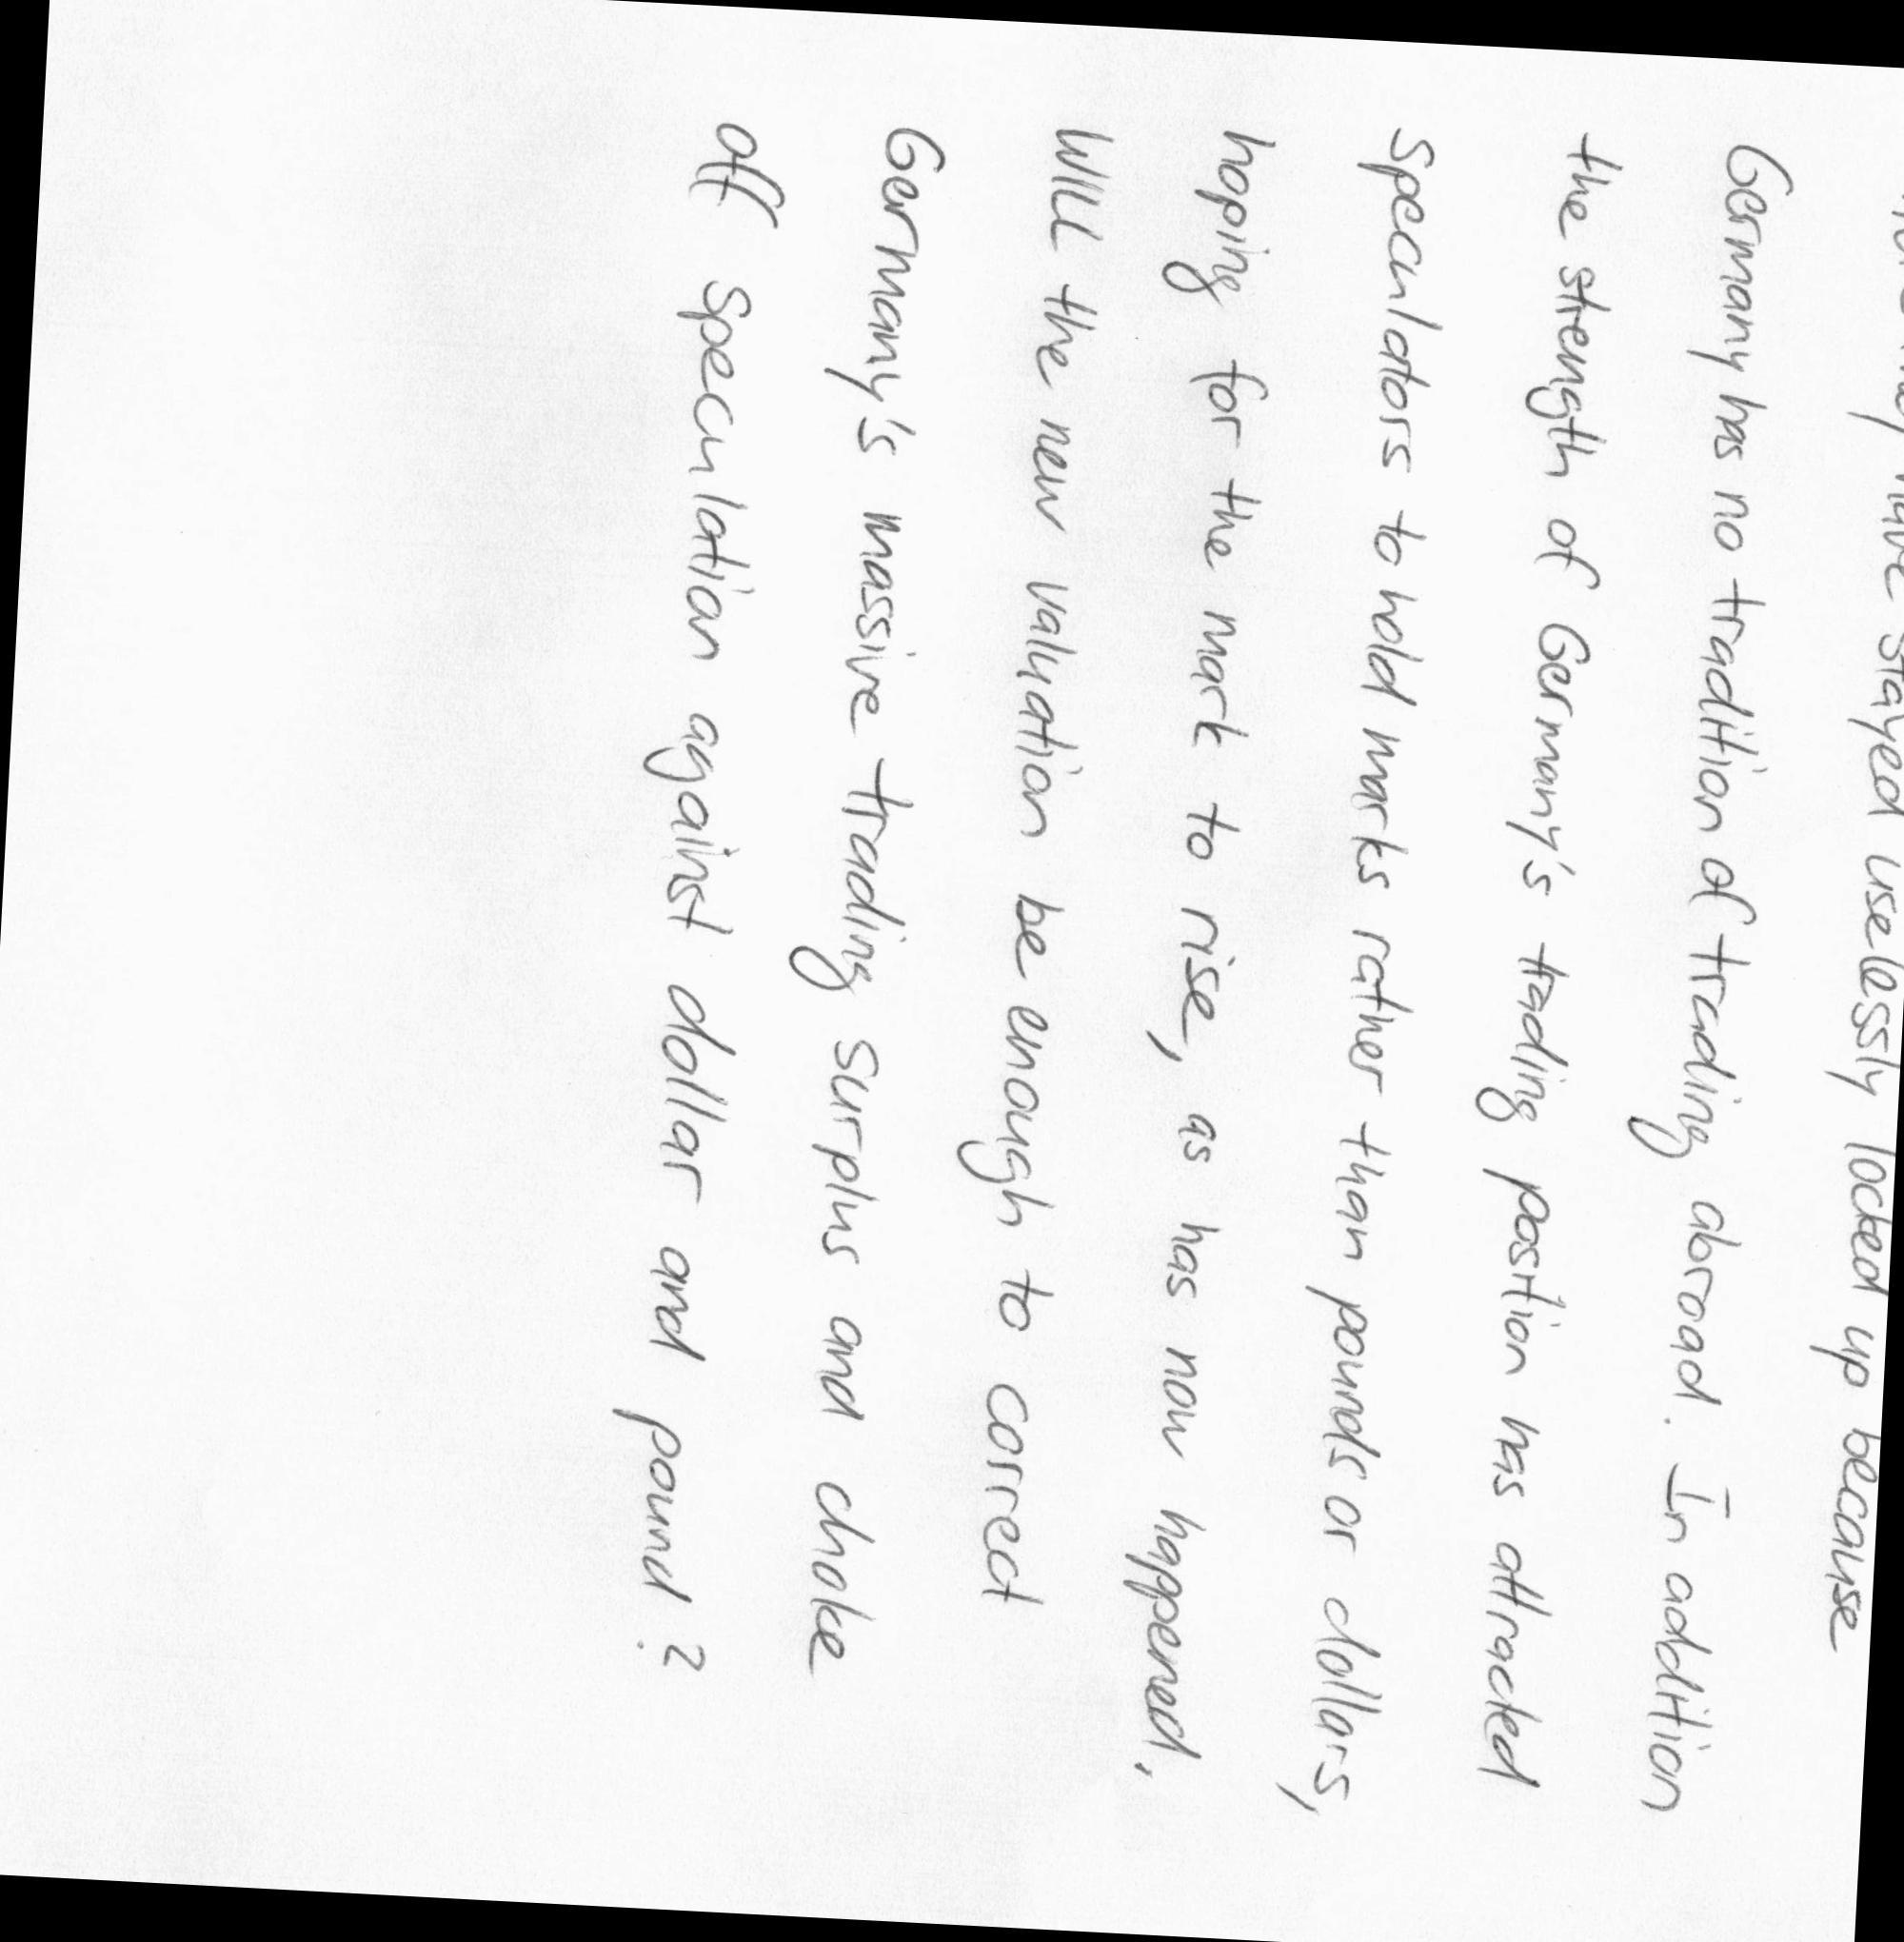 have stayed uselessly locked up because
Germany has no tradition of trading abroad. In addition
the strength of Germany's trading position has attracted
Speculators to hold marks rather than pounds or dollars,
hoping for the mark to rise, as has now happened,
Will the new valuation be enough to correct
Germany's massive trading surplus and choke
off Speculation against dollar and pound?